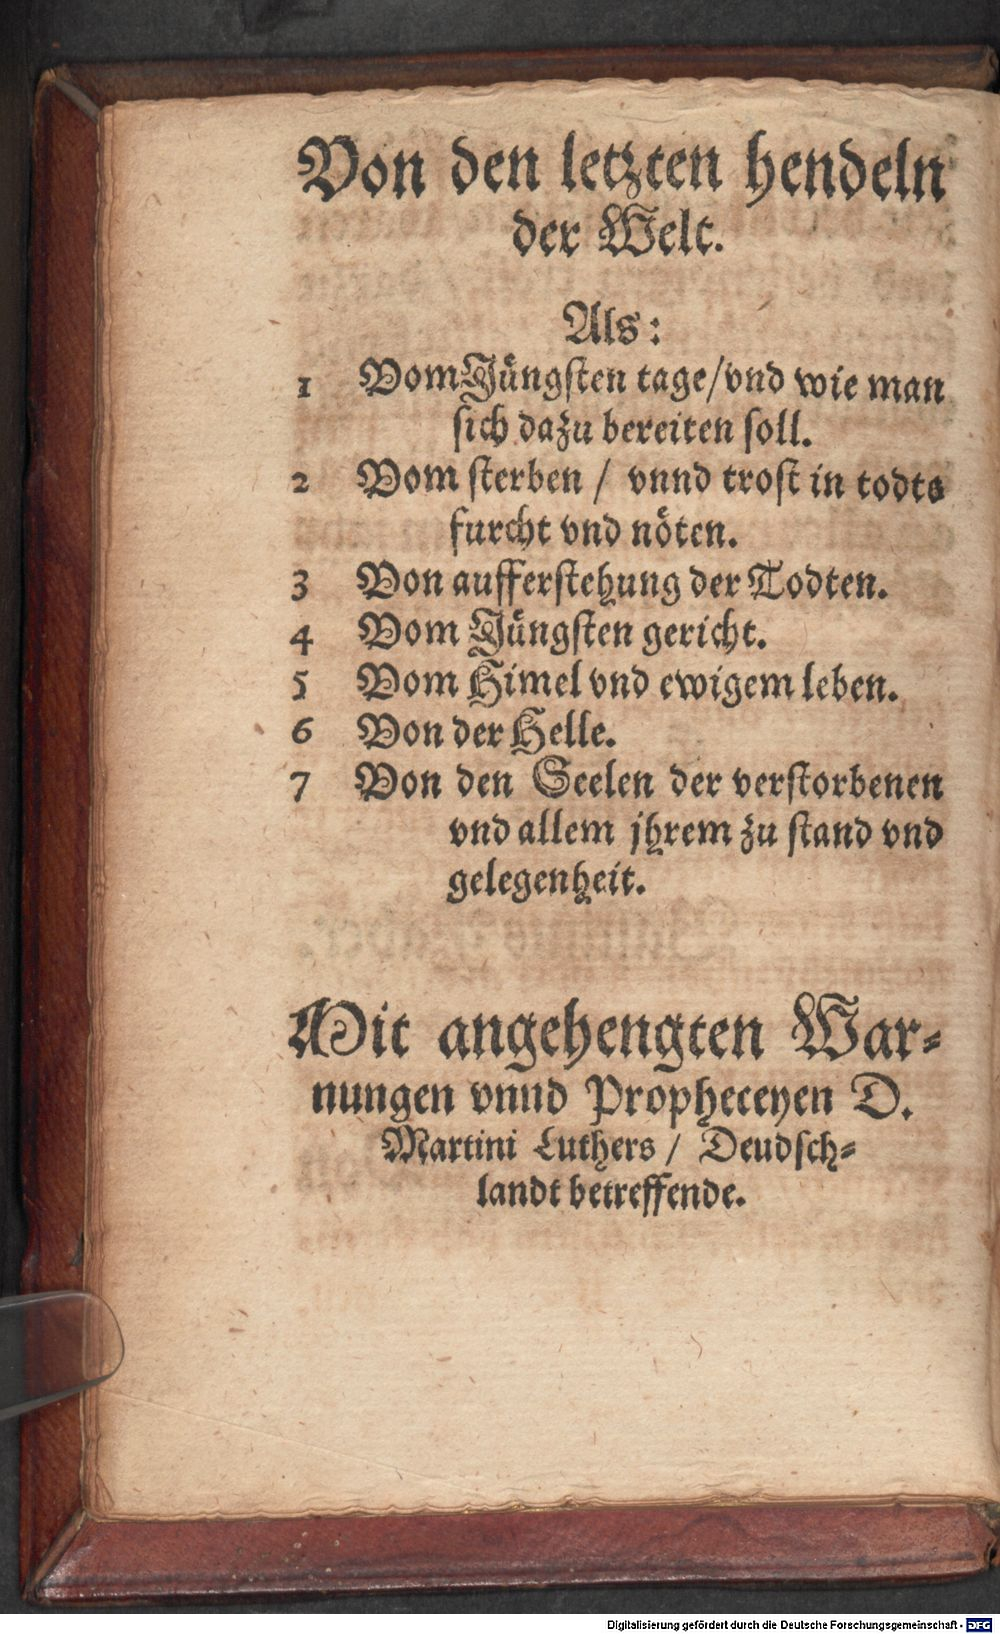 Von den letzten hendeln
der Welt.
Als:
1 Vom Jüngsten tage/vnd wie man
sich dazu bereiten soll.
2 Vom sterben / vnnd trost in todts
furcht vnd nöten.
3 Von aufferstehung der Todten.
4 Vom Jüngsten gericht.
5 Vom Himel vnd ewigem leben.
6 Von der Helle.
7 Von den Seelen der verstorbenen
vnd allem jhrem zu stand vnd
gelegenheit.
Mit angehengten War-
nungen vnnd Propheceyen D.
Martini Luthers / Deudsch-
landt betreffende.
Digitalisierung gefördert durch die Deutsche Forschungsgemeinschaft - DFG